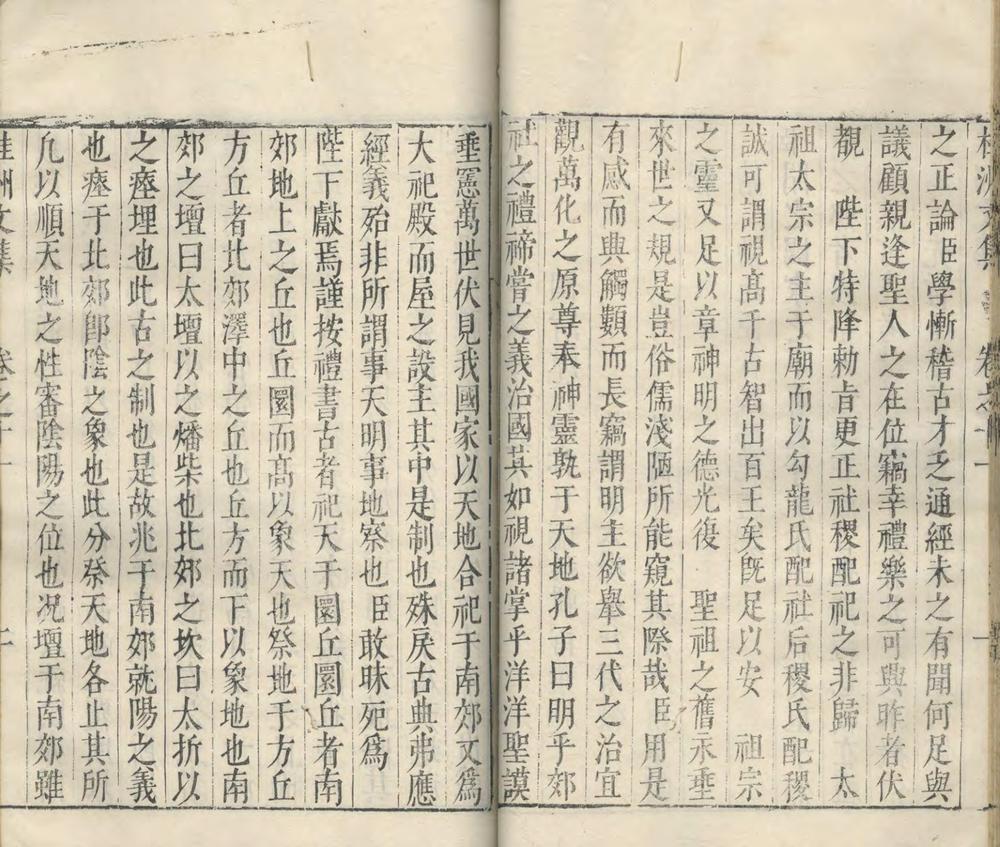 桂洲文集 卷之十一
之正論臣學慚稽古才乏通經未之有聞何足與
議顧親逢聖人之在位竊幸禮樂之可興昨者伏
覩 陛下特降勅旨更正社稷配祀之非歸 太
祖太宗之主于廟而以勾龍氏配社后稷氏配稷
誠可謂視高千古智出百王矣既足以安 祖宗
之靈又足以章神明之德光復 聖祖之舊永垂
來世之規是豈俗儒淺陋所能窺其際哉臣用是
有感而興觸類而長竊謂明主欲舉三代之治宜
觀萬化之原尊奉神靈孰于天地孔子曰明乎郊
社之禮禘嘗之義治國其如視諸掌乎洋洋聖謨
垂憲萬世伏見我國家以天地合祀于南郊又爲
大祀殿而屋之設主其中是制也殊戾古典弗應
經義殆非所謂事天明事地察也臣敢昧死爲
陛下獻焉謹按禮書古者祀天于圜丘圜丘者南
郊地上之丘也丘圜而高以象天也祭地于方丘
方丘者北郊澤中之丘也丘方而下以象地也南
郊之壇曰太壇以之燔柴也北郊之坎曰太折以
之瘞埋也此古之制也是故兆于南郊就陽之義
也瘞于北郊卽陰之象也此分祭天地各止其所
凡以順天地之性審陰陽之位也况壇于南郊雖
桂洲文集 卷之十一 二